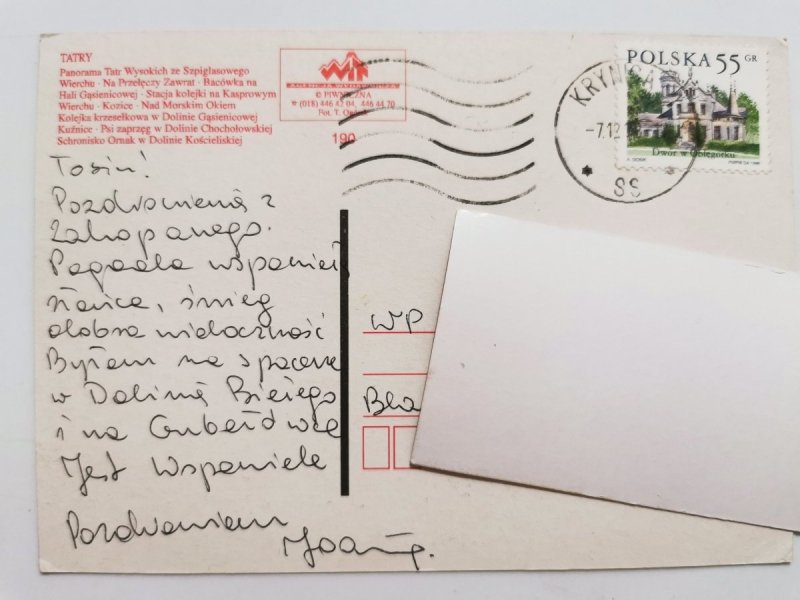 TATRY
Panorama Tatr Wysokich ze Szpiglasowego
Wierchu · Na Przełęczy Zawrat · Bacówka na
Hali Gąsienicowej · Stacja kolejki na Kasprowym
Wierchu · Kozice · Nad Morskim Okiem
Kolejka krzesełkowa w Dolinie Gąsienicowej
Kuźnice · Psi zaprzęg w Dolinie Chochołowskiej
Schronisko Ornak w Dolinie Kościeliskiej
WIT
AGENCJA WYDAWNICZA
© PIWNICZNA
☎ (018) 446 47 04, 446 44 70
Fot. T.
190
POLSKA 55 GR
Dwór w Oblęgorku
KRYNICA
-7.12
SS
Tosiu!
Pozdrowienia z
Zakopanego.
Pogoda wspaniała
słońce, śnieg
dobra widoczność
Byłam na spacerze
w Dolinie Białego
i na Gubałówce
Jest Wspaniale
Pozdrawiam
WP
Bla